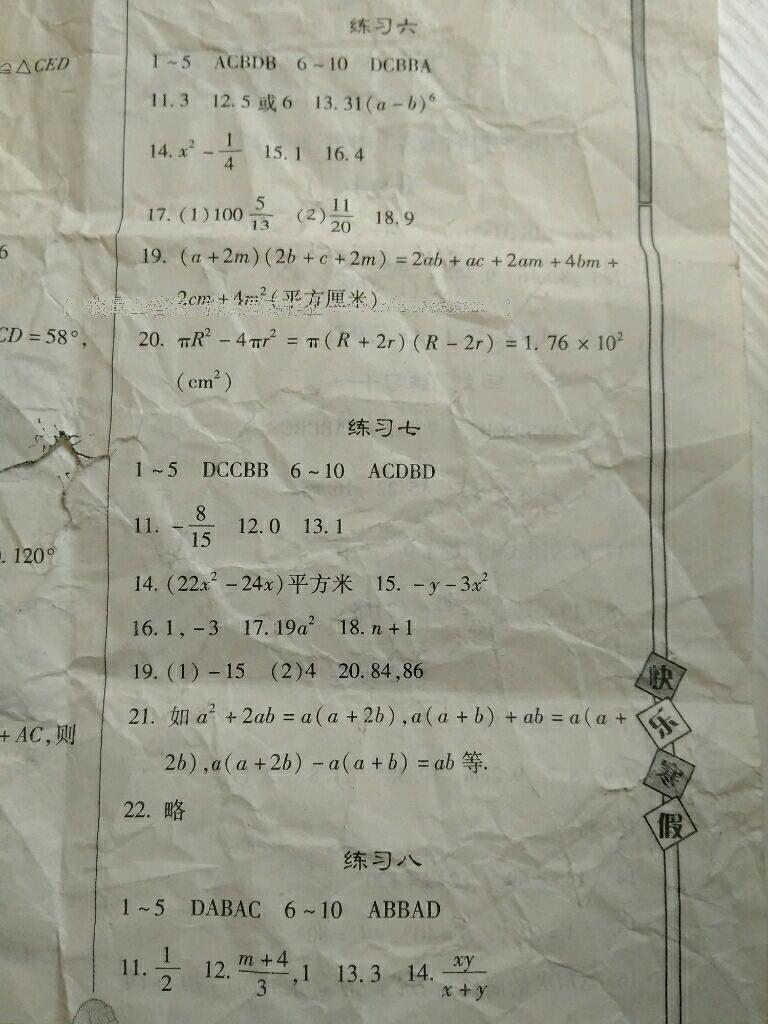 ≌△CED
6
CD=58°,
120°
+AC,则
练习六
1~5 ACBDB 6~10 DCBBA
11.3 12.5或6 13.31(a-b)⁶
14.x²-1/4 15.1 16.4
17.(1)100 5/13 (2)11/20 18.9
19.(a+2m)(2b+c+2m)=2ab+ac+2am+4bm+
2cm+4m²(平方厘米)
20. πR²-4πr²=π(R+2r)(R-2r)=1.76×10²
(cm²)
练习七
1~5 DCCBB 6~10 ACDBD
11. -8/15 12.0 13.1
14.(22x²-24x)平方米 15. -y-3x²
16.1,-3 17.19a² 18.n+1
19.(1)-15 (2)4 20.84,86
21. 如a²+2ab=a(a+2b),a(a+b)+ab=a(a+
2b),a(a+2b)-a(a+b)=ab等.
22. 略
练习八
1~5 DABAC 6~10 ABBAD
11. 1/2 12. (m+4)/3,1 13.3 14. xy/(x+y)
快
乐
寒
假